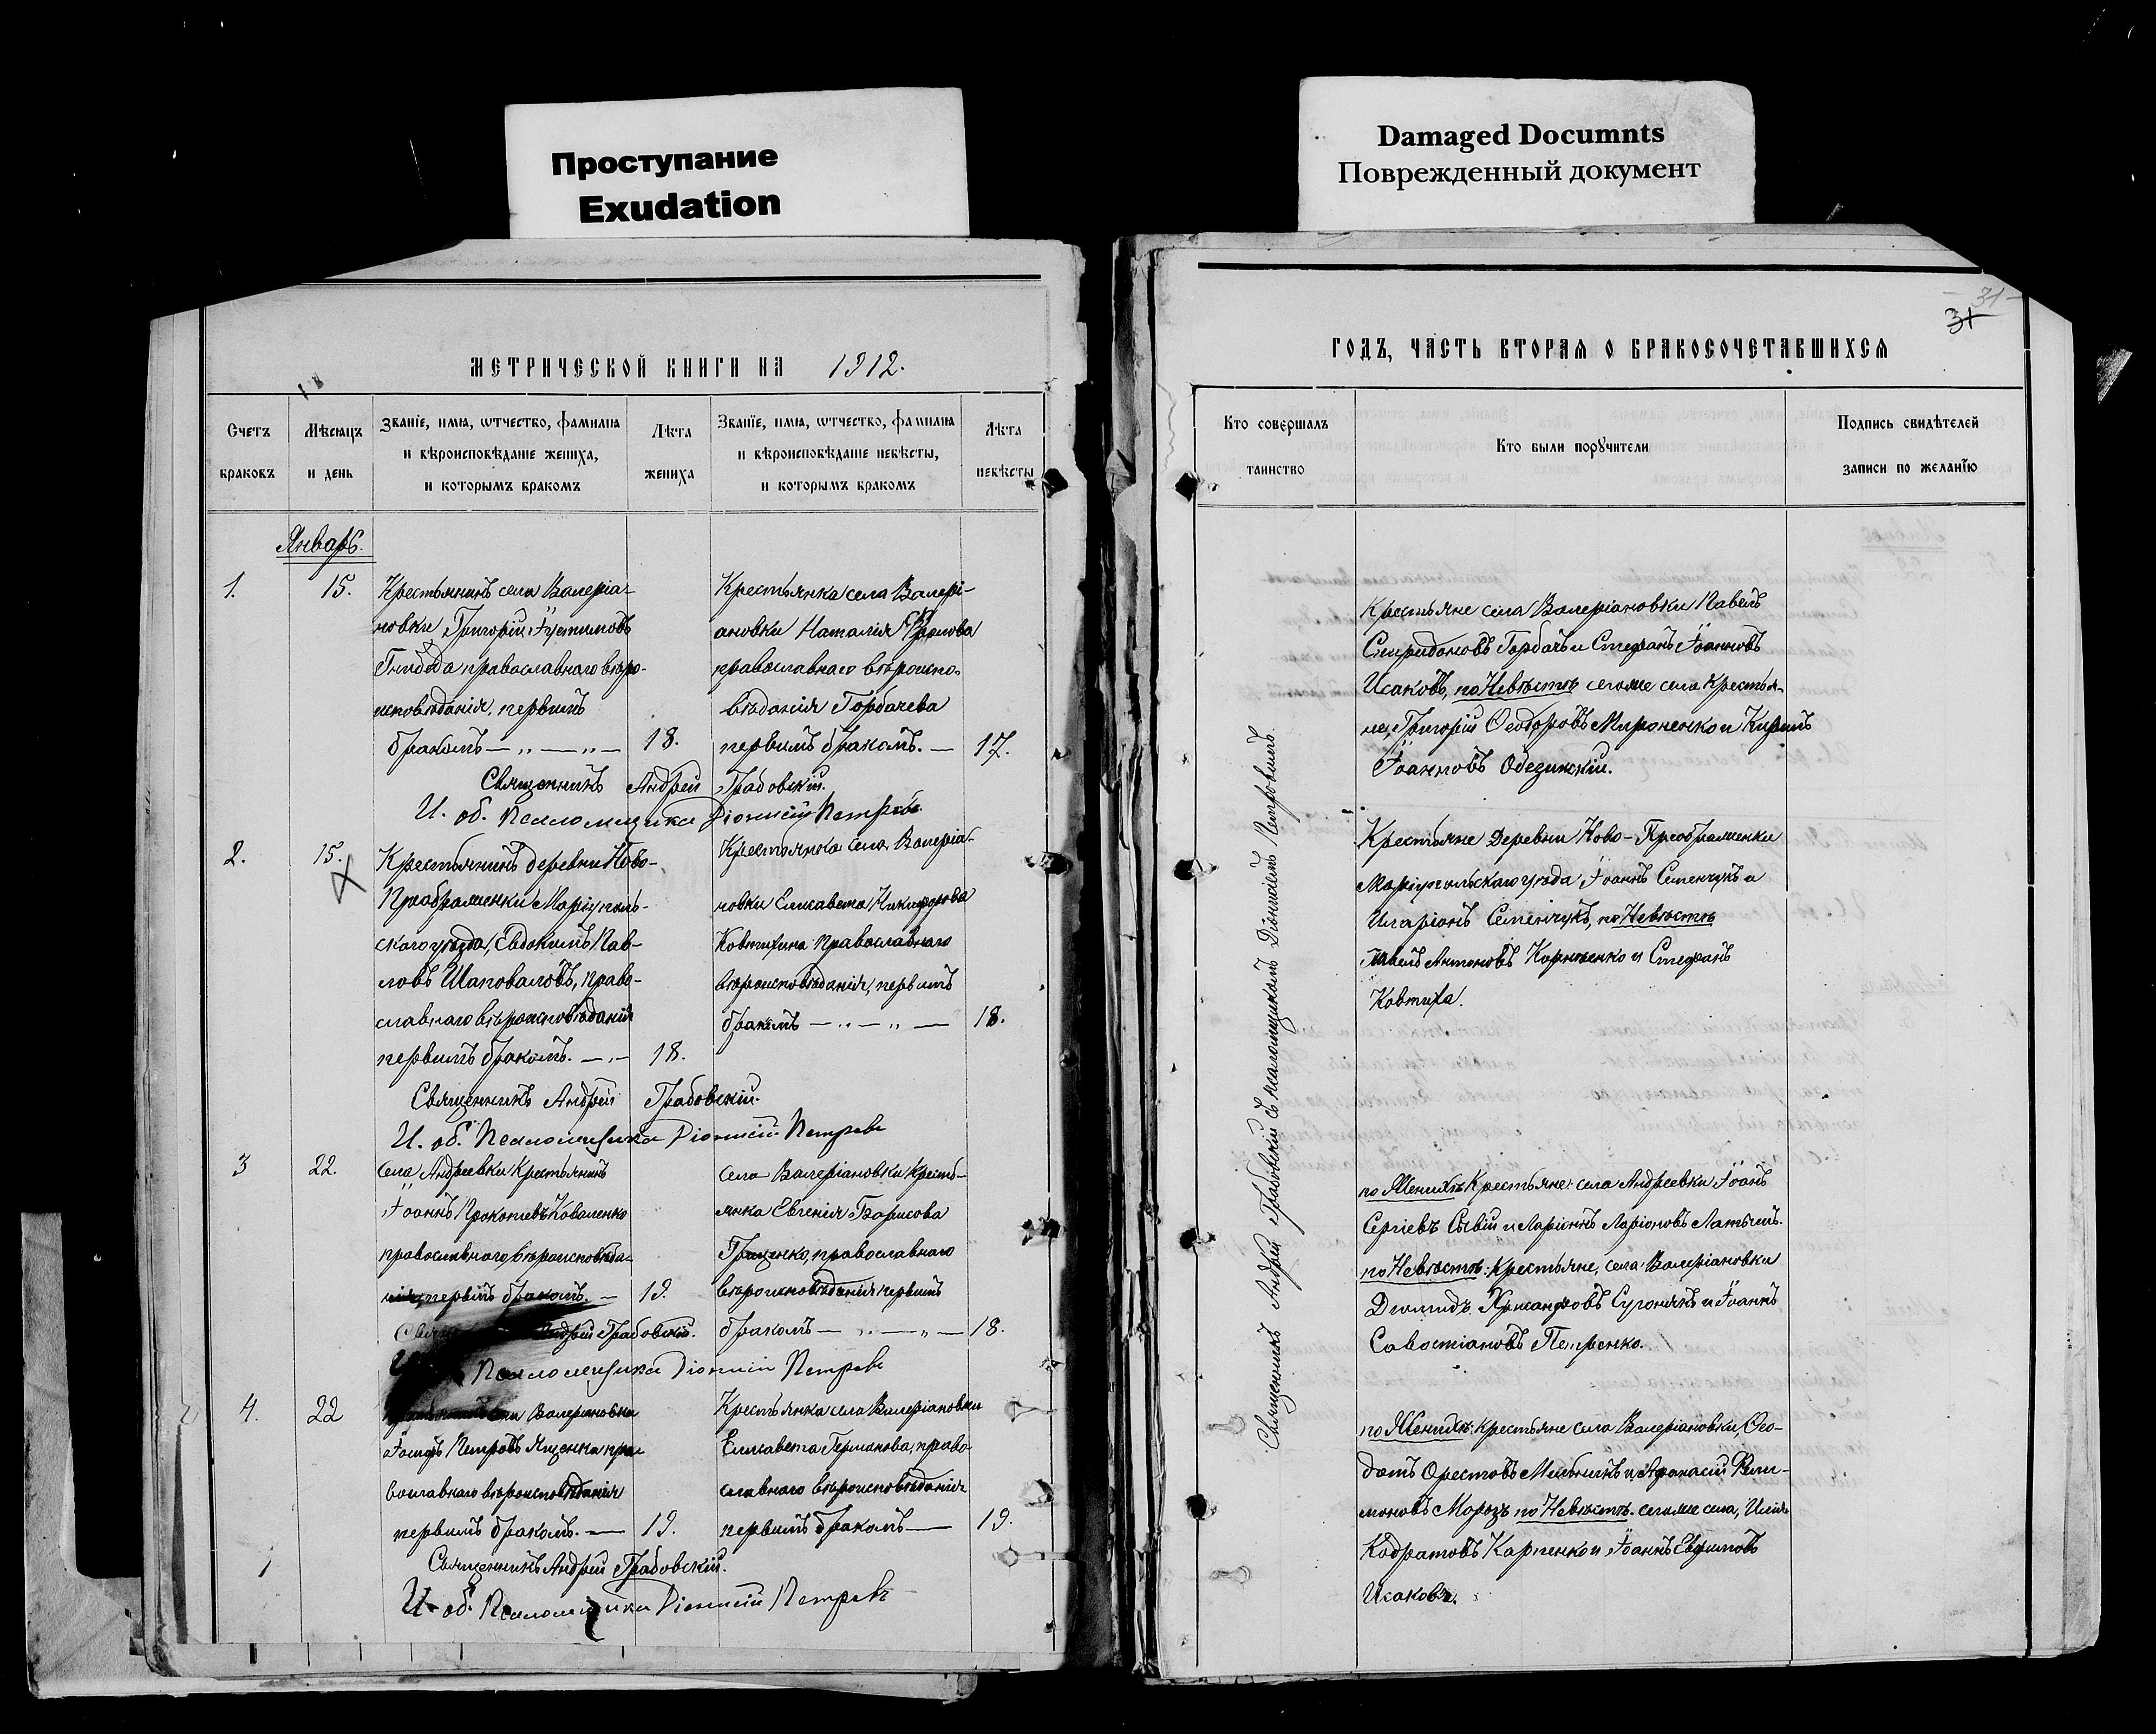 Проступание
Exudation
Damaged Documnts
Поврежденный документ
МЕТРИЧЕСКОЙ КНИГИ НА 1912.
Счетъ
браковъ
Мѣсяцъ
и день
Званіе, имя, ѡтчество, фамилія
и вѣроисповѣданіе жениха,
и которымъ бракомъ
Лѣта
жениха
Званіе, имя, ѡтчество, фамилія
и вѣроисповѣданіе невѣсты,
и которымъ бракомъ
Лѣта
невѣсты
Январь.
1.
15.
Крестьянинъ села Валеріа-
новки Григорій Іустиновъ
православнаго вѣро-
исповѣданія, первымъ
бракомъ — „ — „ —
18.
Крестьянка села Валері-
ановки Наталія
православнаго вѣроиспо-
вѣданія Горбачева
первымъ бракомъ. —
17.
Священникъ Андрей Грабовскій.
И. об. Псаломщика Діонисій Петровъ.
2.
15.
Крестьянинъ деревни Ново-
Преображенки Маріуполь-
скаго уѣзда, Евдокимъ Пав-
ловъ Шаповаловъ, право-
славнаго вѣроисповѣданія
первымъ бракомъ. — „ —
18.
Крестьянка села Валеріа-
новки Елисавета Никифорова
Ковтифа православнаго
вѣроисповѣданія, первымъ
бракомъ — „ — „ —
18.
Священникъ Андрей Грабовскій.
И. об. Псаломщика Діонисій Петровъ
3
22.
села Андреевки Крестьянинъ
Іоаннъ Прокопіевъ Коваленко
православнаго вѣроисповѣда-
нія, первымъ бракомъ. —
19.
села Валеріановки Кресть-
янка Евгенія Борисова
Грищенко, православнаго
вѣроисповѣданія первымъ
бракомъ — „ — „ —
18.
Андрей Грабовскій.
Псаломщика Діонисій Петровъ
4.
22
Валеріановки
Петровъ Ященко пра-
вославнаго вѣроисповѣданія
первымъ бракомъ. —
19.
Крестьянка села Валеріановки
Елисавета Германова, право-
славнаго вѣроисповѣданія
первымъ бракомъ —
19.
Священникъ Андрей Грабовскій.
И. об. Псаломщика Діонисій Петровъ
31
31
ГОДЪ, ЧАСТЬ ВТОРАЯ О БРАКОСОЧЕТАВШИХСЯ
Кто совершалъ
таинство
Кто были поручители
Подпись свидѣтелей
записи по желанїю
Священникъ Андрей Грабовскій съ псаломщикомъ Діонисіемъ Петровымъ.
Крестьяне села Валеріановки Павелъ
Спиридоновъ Горбачъ и Стефанъ Іоанновъ
Исаковъ, по Невѣстѣ сегоже села крестья-
не, Григорій Ѳеодоровъ Мироненко и Кириллъ
Іоанновъ
Крестьяне Деревни Ново-Преображенки
Маріупольскаго уѣзда, Іоаннъ Семенчукъ и
Иларіонъ Семенчукъ, по Невѣстѣ
Антоновъ Корніенко и Стефанъ
Ковтифа.
по Женихѣ Крестьяне: села Андреевки Іоанъ
Сергіевъ и Ларіонъ Ларіоновъ
по Невѣстѣ: крестьяне, села Валеріановки
Діомидъ и Іоаннъ
Савостіановъ Петренко.
по Женихѣ: крестьяне села Валеріановки, Ѳео-
дотъ Орестовъ Мельникъ и Аѳанасій Фили-
моновъ Морозъ по Невѣстѣ. сегоже села, Илія
Кодратовъ Карпенко и Іоаннъ Евфимовъ
Исаковъ.